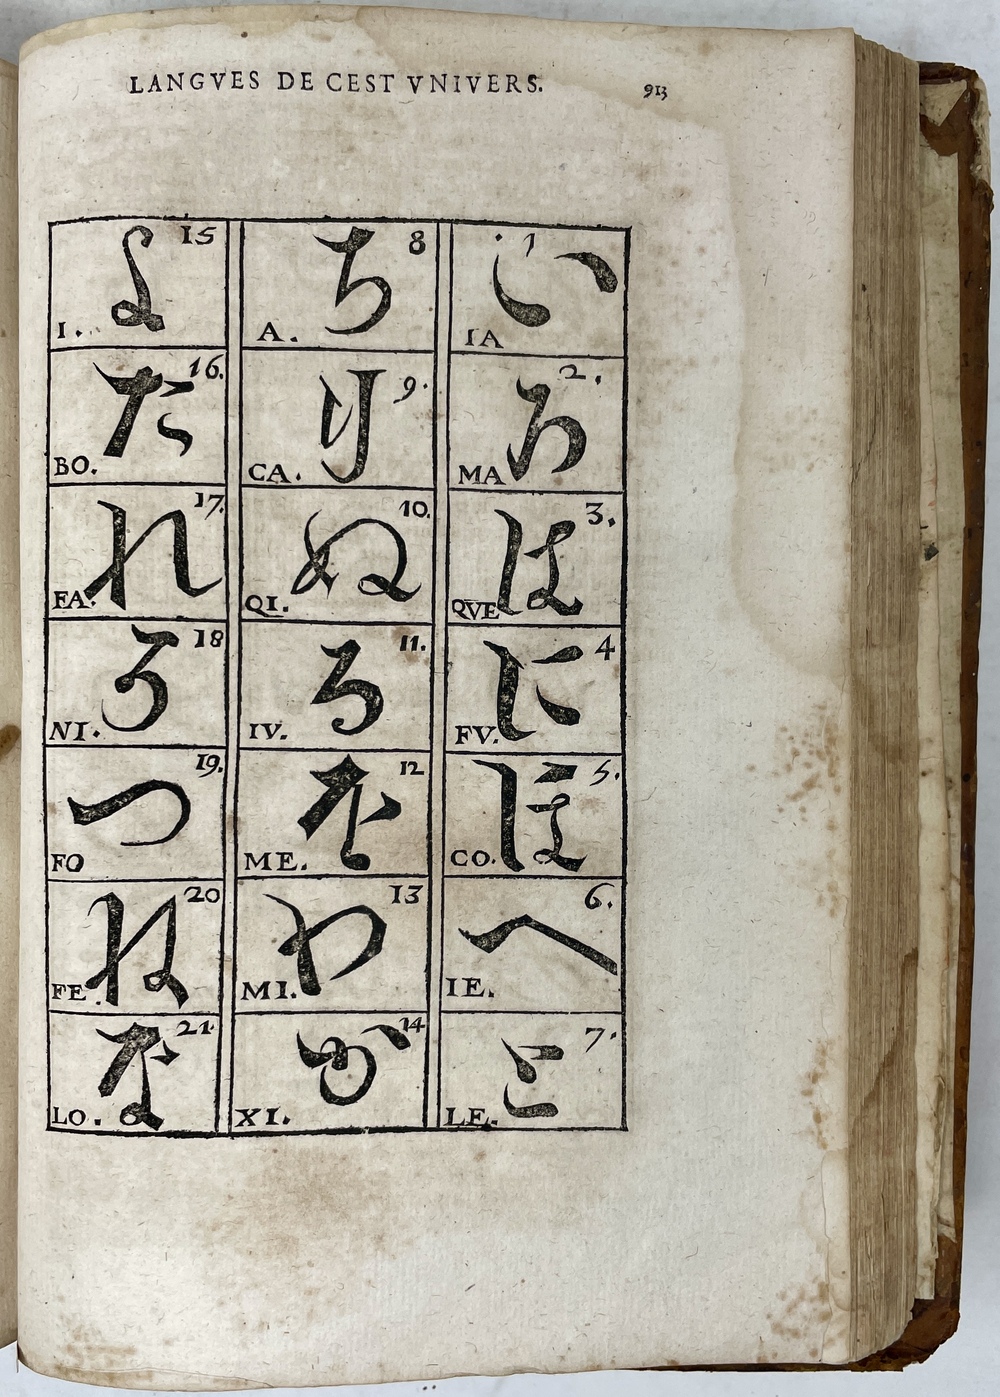 LANGVES DE CEST VNIVERS. 913
15 よ I.
8 ち A.
1 い IA
16. た BO.
9. り CA.
2. ろ MA
17. れ FA.
10. ぬ QI.
3. は QVE
18 そ NI.
11. る IV.
4 に FV.
19. つ FO
12 を ME.
5. ほ CO.
20 ね FE.
13 わ MI.
6. へ IE.
21. な LO.
14 か XI.
7. と LE.